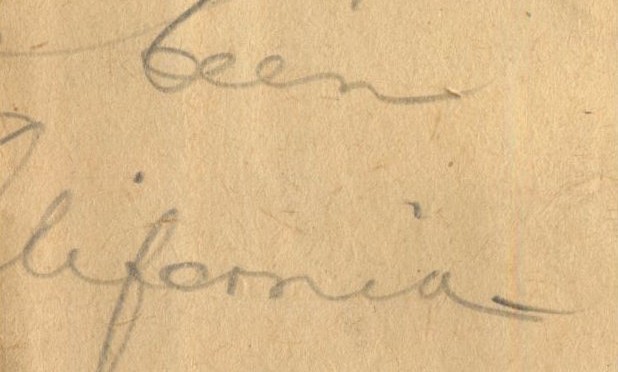 been
alifornia